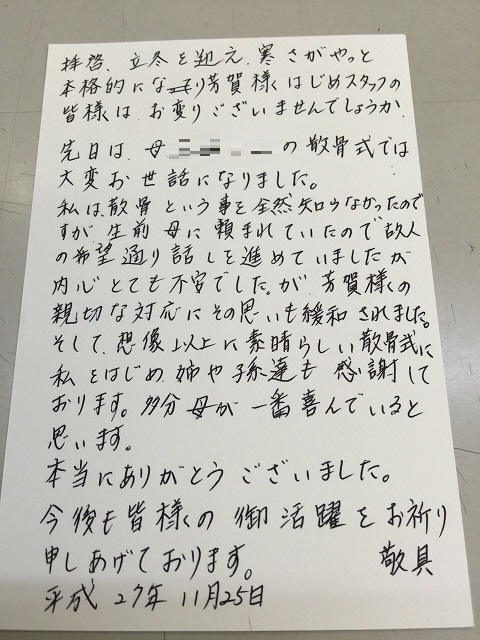 拝啓、立冬を迎え、寒さがやっと
本格的になり芳賀様はじめスタッフの
皆様は、お変りございませんでしょうか。
先日は、母の散骨式では
大変お世話になりました。
私は、散骨という事を全然知らなかったので
すが生前母に頼まれていたので故人
の希望通り話しを進めていましたが
内心とても不安でした。が、芳賀様の
親切な対応にその思いも緩和されました。
そして、想像以上に素晴らしい散骨式に
私をはじめ、姉や孫達も感謝して
おります。多分母が一番喜んでいると
思います。
本当にありがとうございました。
今後も皆様の御活躍をお祈り
申しあげております。 敬具
平成27年11月25日